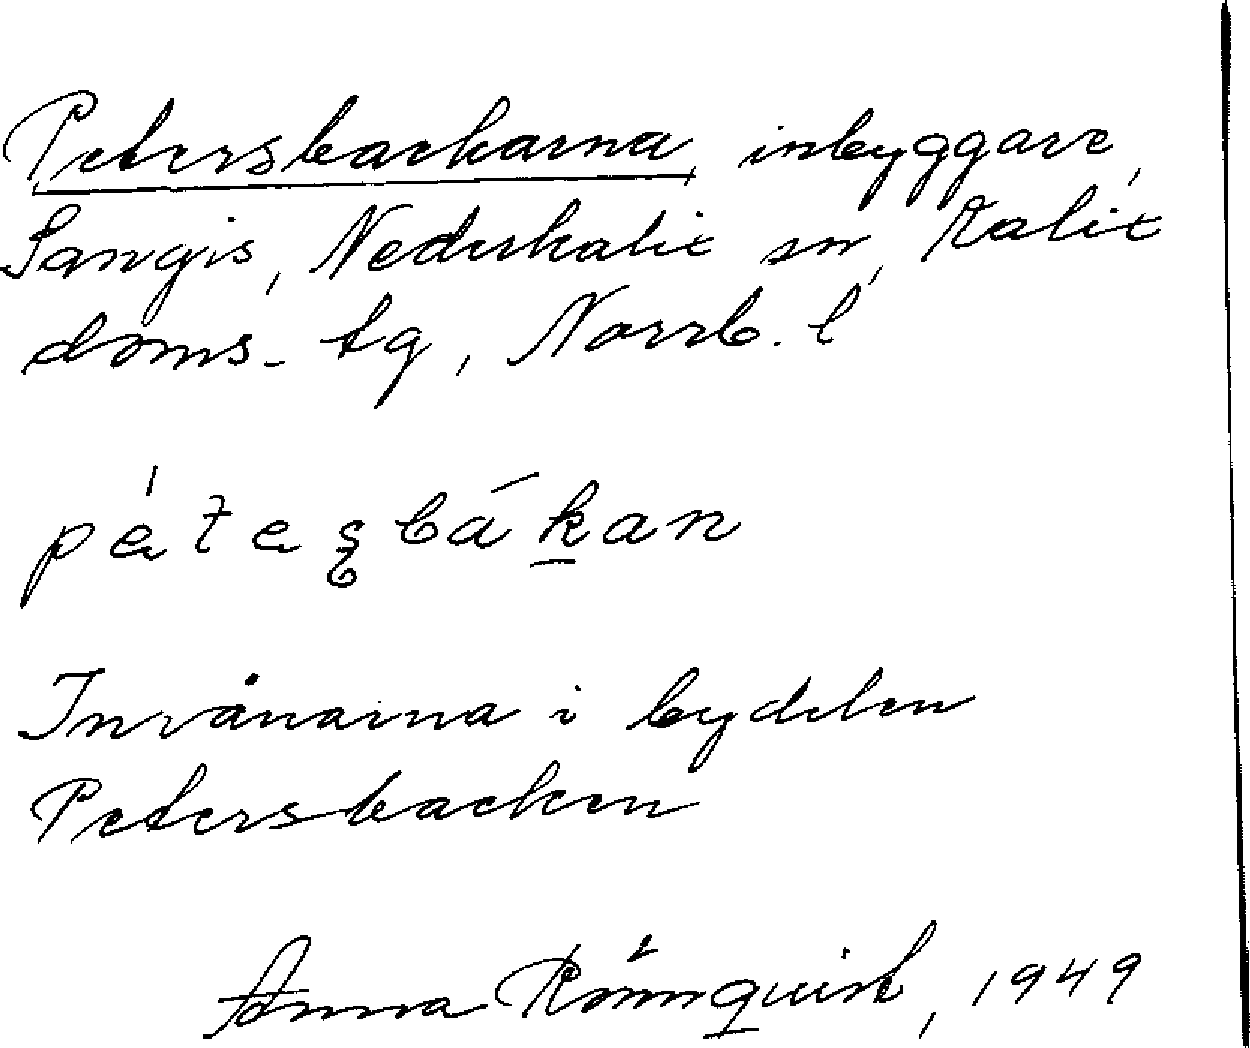 Petersbackarna, inbyggare,
Sangis, Nederkalix sn, Kalix
doms. tg, Norrb. l
Invånarna i bydelen
Petersbacken
Anna Rönnqvist, 1949